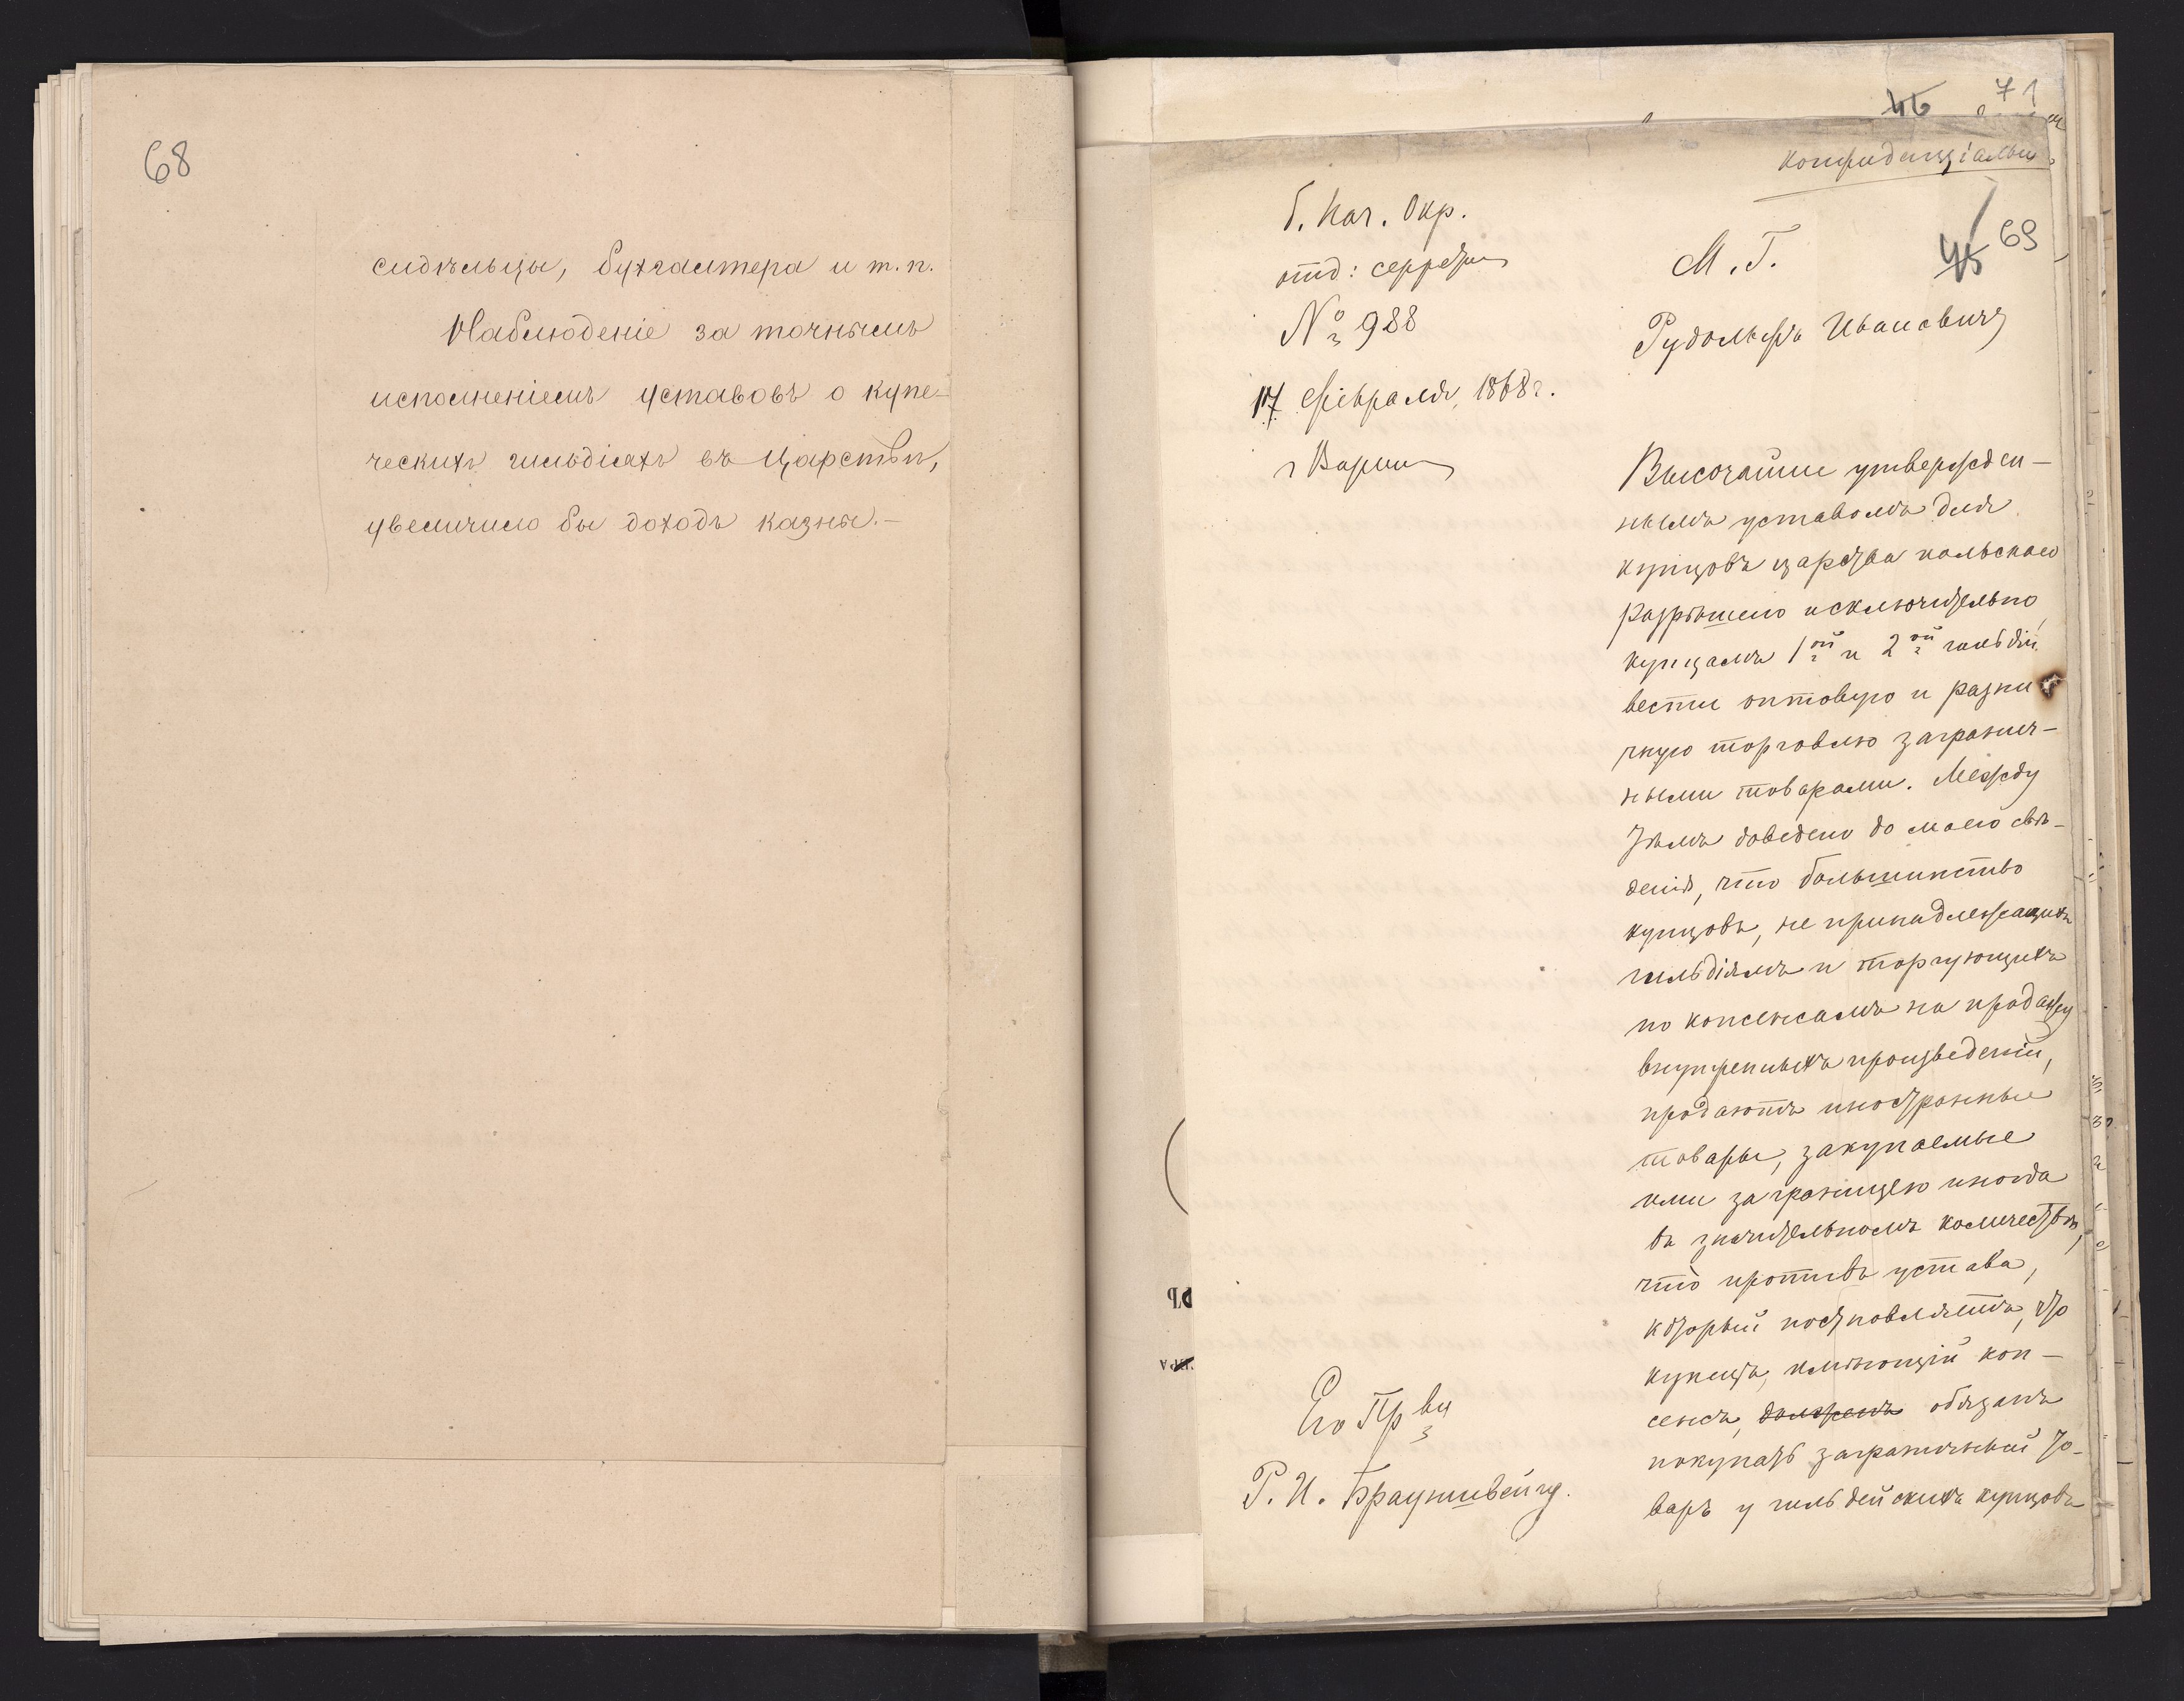 68
сидѣльцы, бухгалтера и т. п.
Наблюденіе за точнымъ
исполненіемъ уставовъ о купе-
ческихъ гильдіяхъ въ Царствѣ,
увеличило бы доходъ казны.-
71
46
конфиденціально
69
45
Б. Нач. Окр.
отд:
№ 988
17 февраля, 1868 г.
г Варшава
М. Г.
Рудольфъ Ивановичъ
Высочайше утвержден-
нымъ уставомъ для
купцовъ царства польскаго
разрѣшено исключительно
купцамъ 1ой и 2ой гильдіи
вести оптовую и разни
чную торговлю загранич-
ными товарами. Между
тѣмъ доведено до моего свѣ-
денія, что большинство
купцовъ, не принадлежащихъ
гильдіямъ и торгующихъ
по консенсамъ на продажу
внутреннихъ произведеній,
продаютъ иностранные
товары, закупаемые
ими за границею иногда
въ значительномъ количествѣ,
что противъ устава,
который постановляетъ, что
купецъ, имѣющій кон-
сенсъ, долженъ обязанъ
покупать заграничный то-
варъ у гильдейскихъ купцовъ
Его Пр ву
Р. И. Брауншвейгу.